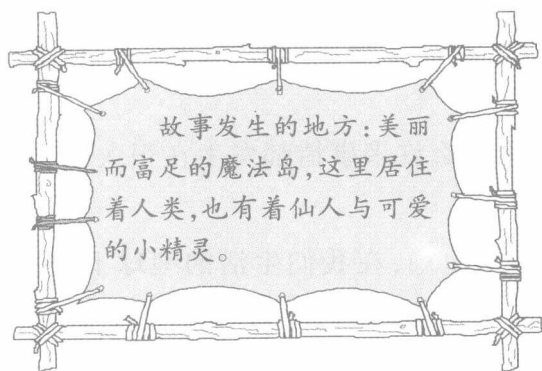 故事发生的地方:美丽
而富足的魔法岛,这里居住
着人类,也有着仙人与可爱
的小精灵。